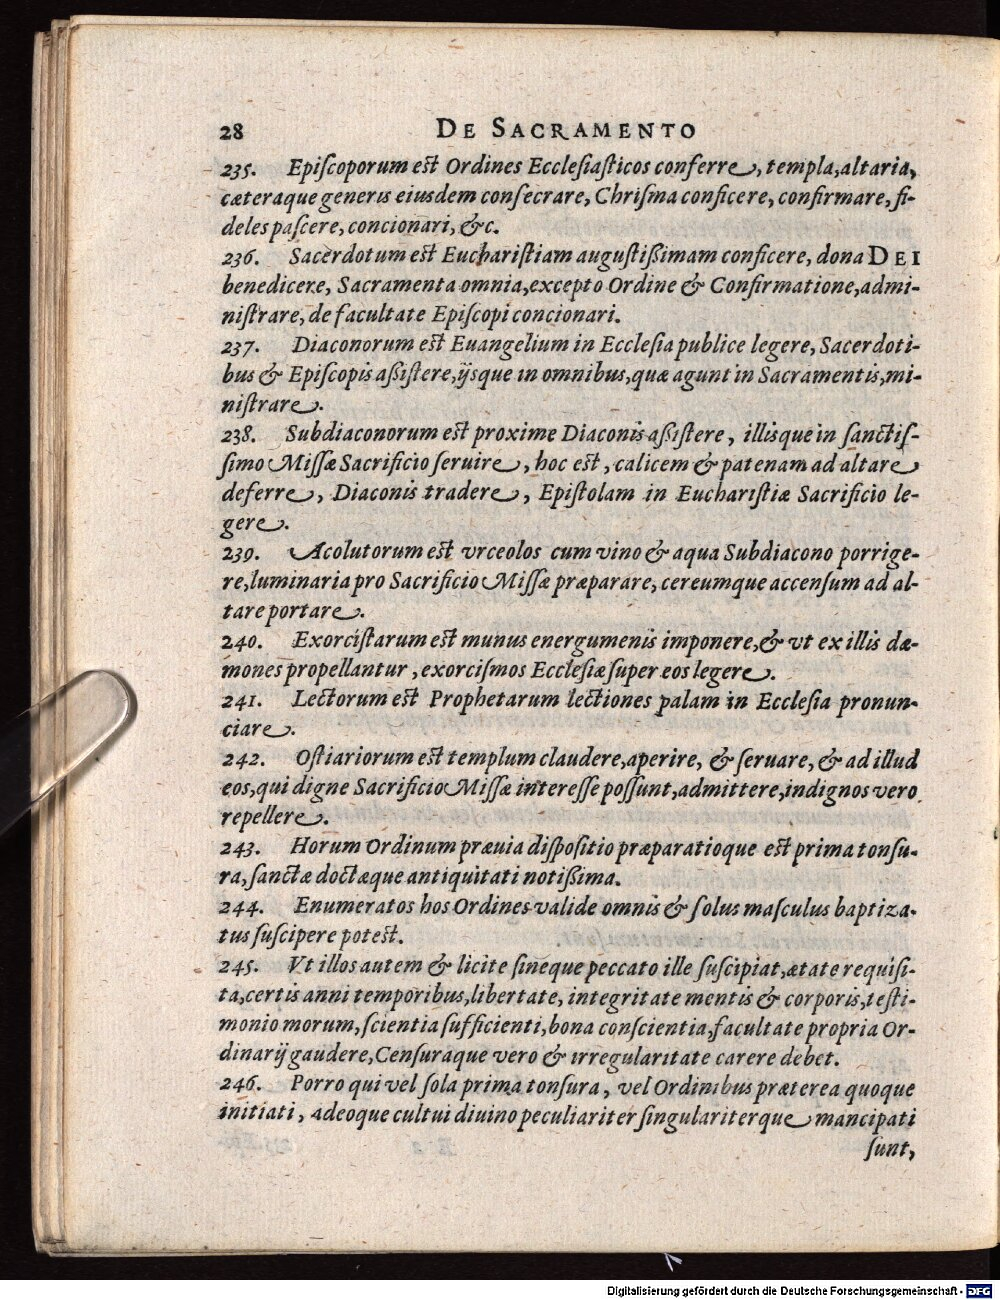 28 DE SACRAMENTO
235. Episcoporum est Ordines Ecclesiasticos conferre, templa, altaria,
cæteraque generis eiusdem consecrare, Chrisma conficere, confirmare, fi-
deles pascere, concionari, &c.
236. Sacerdotum est Eucharistiam augustißimam conficere, dona DEI
benedicere, Sacramenta omnia, excepto Ordine & Confirmatione, admi-
nistrare, de facultate Episcopi concionari.
237. Diaconorum est Euangelium in Ecclesia publice legere, Sacerdoti-
bus & Episcopis aßistere, ijsque in omnibus, quæ agunt in Sacramentis, mi-
nistrare.
238. Subdiaconorum est proxime Diaconis aßistere, illisque in sanctis-
simo Missæ Sacrificio seruire, hoc est, calicem & patenam ad altare
deferre, Diaconis tradere, Epistolam in Eucharistiæ Sacrificio le-
gere.
239. Acolutorum est vrceolos cum vino & aqua Subdiacono porrige-
re, luminaria pro Sacrificio Missæ præparare, cereumque accensum ad al-
tare portare.
240. Exorcistarum est munus energumenis imponere, & vt ex illis dæ-
mones propellantur, exorcismos Ecclesiæ super eos legere.
241. Lectorum est Prophetarum lectiones palam in Ecclesia pronun-
ciare.
242. Ostiariorum est templum claudere, aperire, & seruare, & ad illud
eos, qui digne Sacrificio Missæ interesse possunt, admittere, indignos vero
repellere.
243. Horum Ordinum præuia dispositio præparatioque est prima tonsu-
ra, sanctæ doctæque antiquitati notißima.
244. Enumeratos hos Ordines valide omnis & solus masculus baptiza-
tus suscipere potest.
245. Vt illos autem & licite sineque peccato ille suscipiat, ætate requisi-
ta, certis anni temporibus, libertate, integritate mentis & corporis, testi-
monio morum, scientia sufficienti, bona conscientia, facultate propria Or-
dinarij gaudere, Censuraque vero & irregularitate carere debet.
246. Porro qui vel sola prima tonsura, vel Ordinibus præterea quoque
initiati, adeoque cultui diuino peculiariter singulariterque mancipati
sunt,
Digitalisierung gefördert durch die Deutsche Forschungsgemeinschaft - DFG